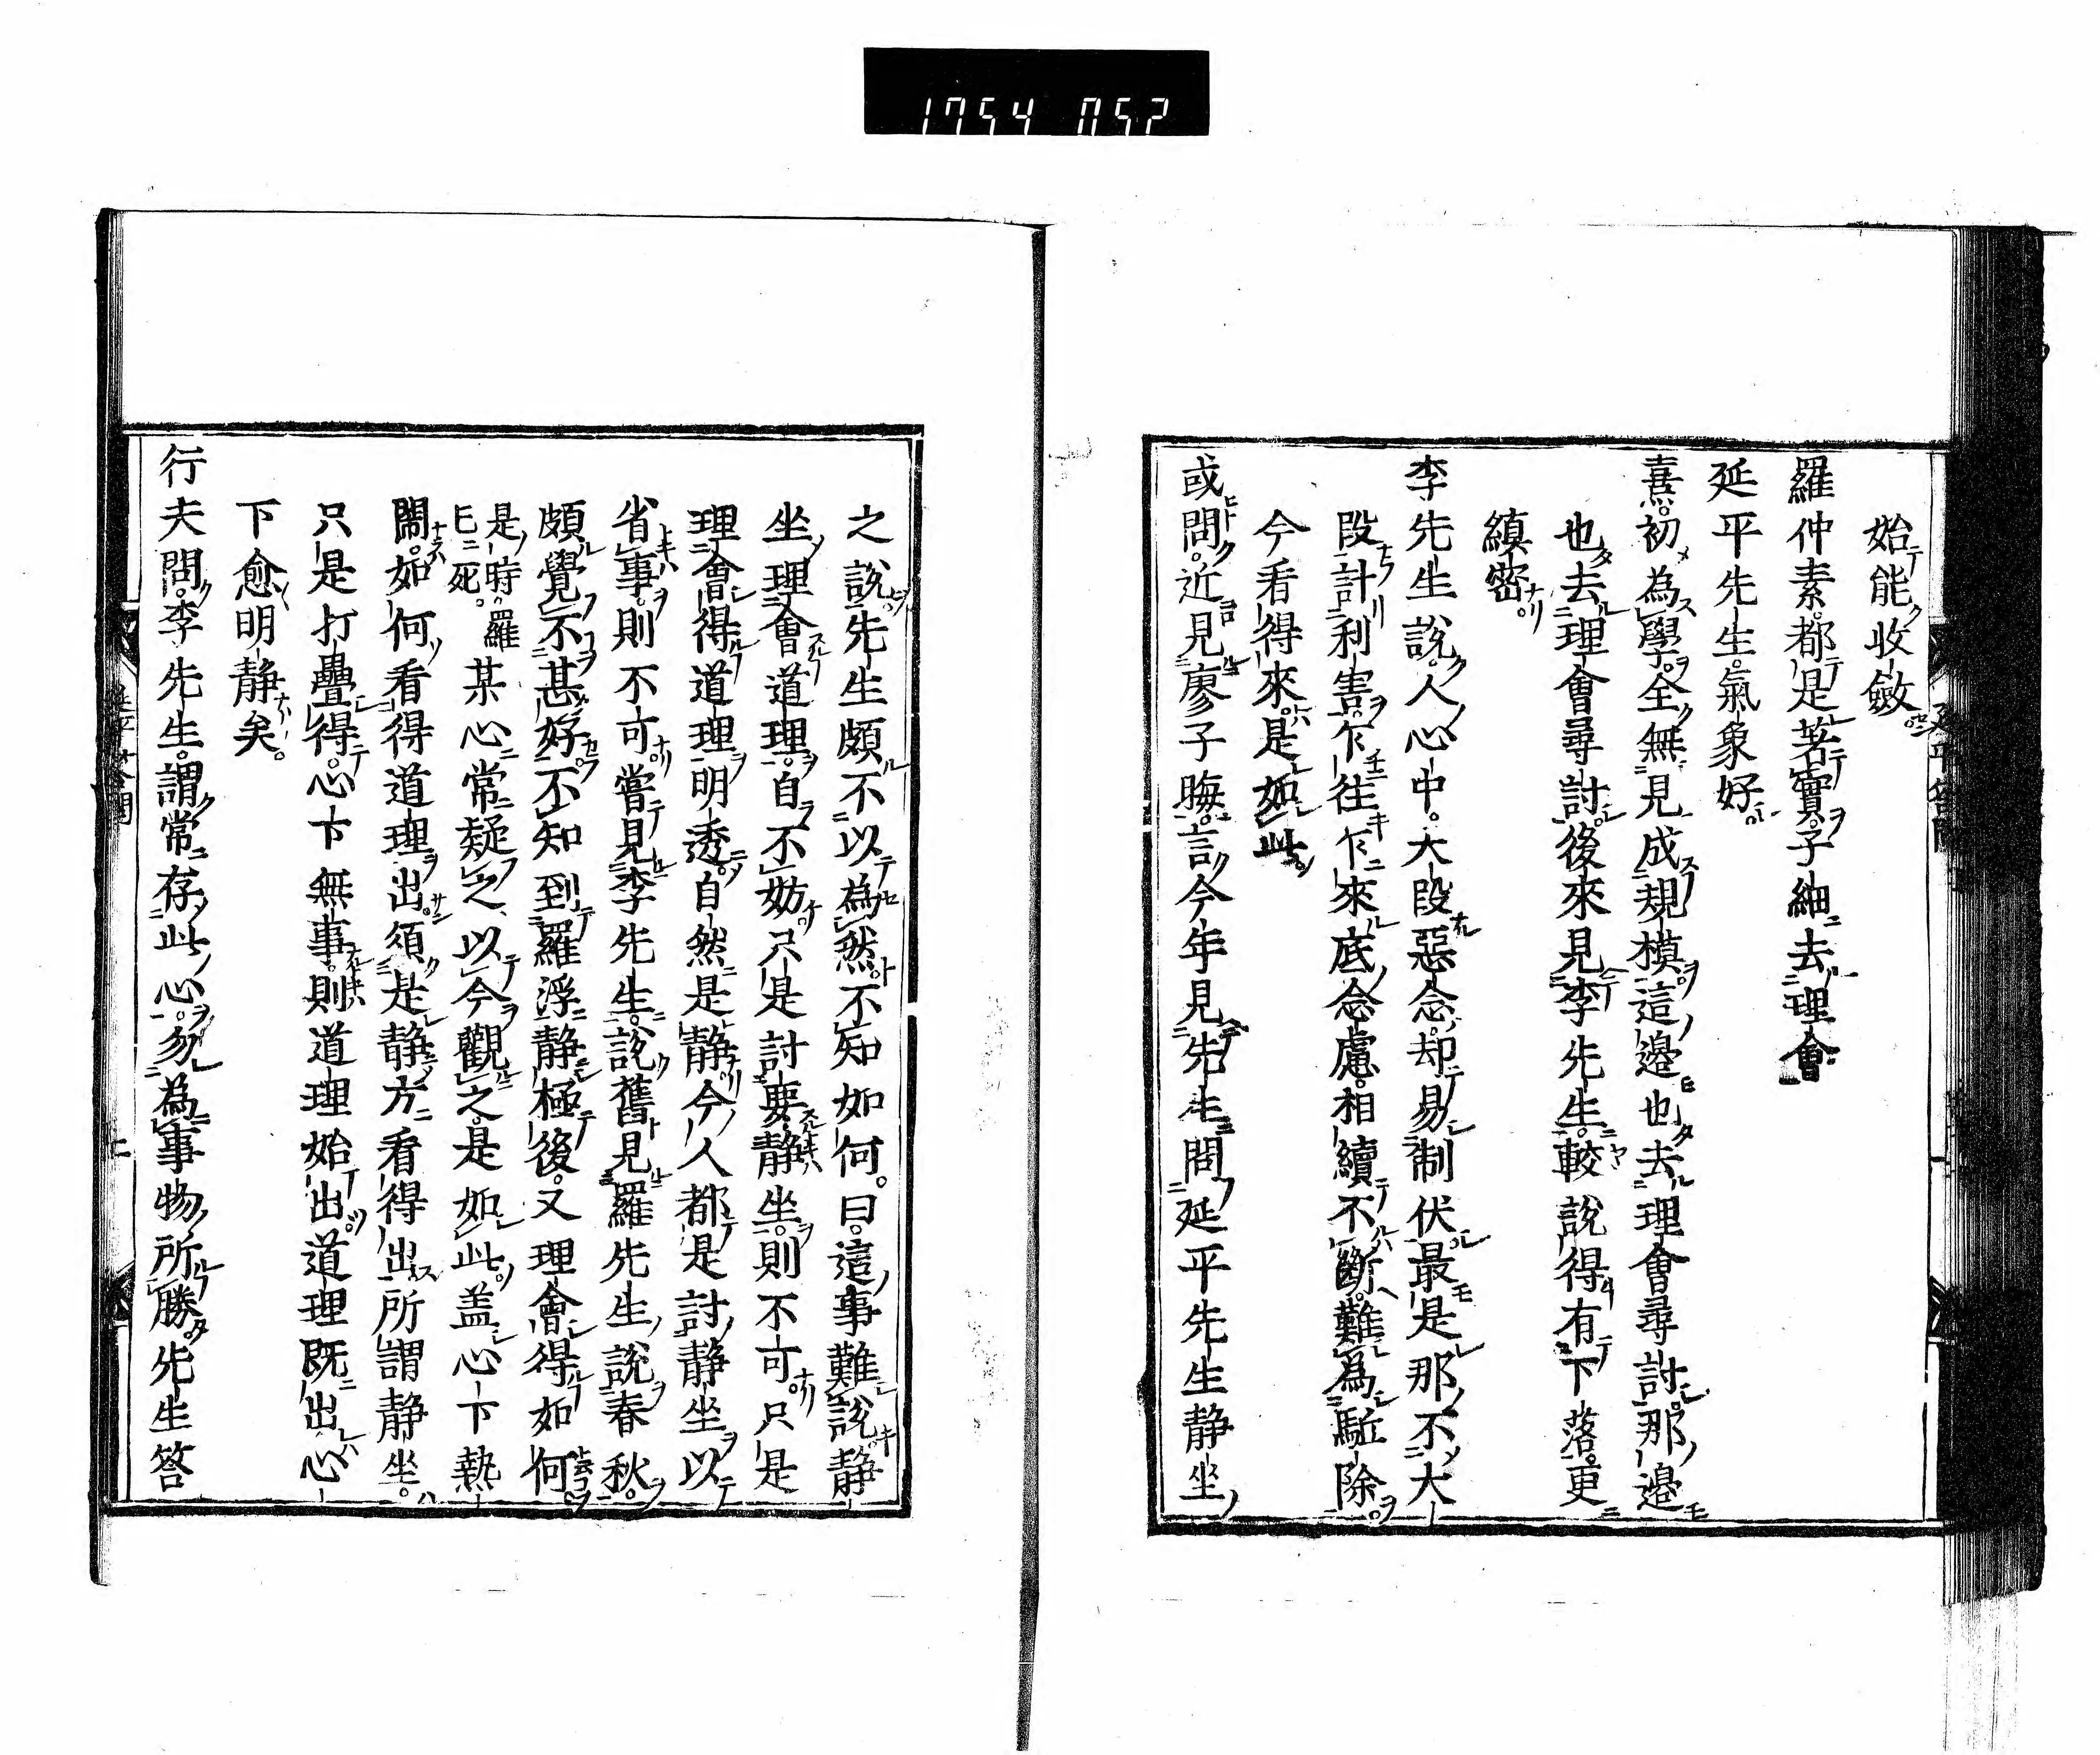 1754 052
始能收斂
羅仲素都是著實子細去理會
延平先生氣象好
熹初為學全無見成規模這邊也去理會尋討那邊
也去理會尋討後來見李先生較說得有下落更
縝密
李先生說人心中大段惡念却易制伏最是那不大
段計利害乍往乍來底念慮相續不斷難為駈除
今看得來是如此
或問近見廖子晦言今年見先生問延平先生静坐
之說先生頗不以為然不知如何曰這事難說静
坐理會道理自不妨只是討要静坐則不可只是
理會得道理明透自然是静今人都是討静坐以
省事則不可嘗見李先生說舊見羅先生說春秋
頗覺不甚好不知到羅浮静極後又理會得如何
是時羅
已死某心常疑之以今觀之是如此盖心下熱
鬧如何看得道理出須是静方看得出所謂静坐
只是打疊得心下無事則道理始出道理既出心
下愈明静矣
行夫問李先生謂常存此心勿為事物所勝先生答